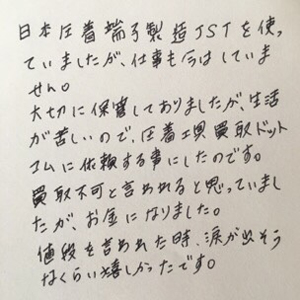 日本圧着端子製造JSTを使っ
ていましたが、仕事も今はしていま
せん。
大切に保管してありましたが、生活
が苦しいので、圧着工具買取ドット
コムに依頼する事にしたのです。
買取不可と言われると思っていまし
たが、お金になりました。
値段を言われた時、涙が出そう
なくらい嬉しかったです。